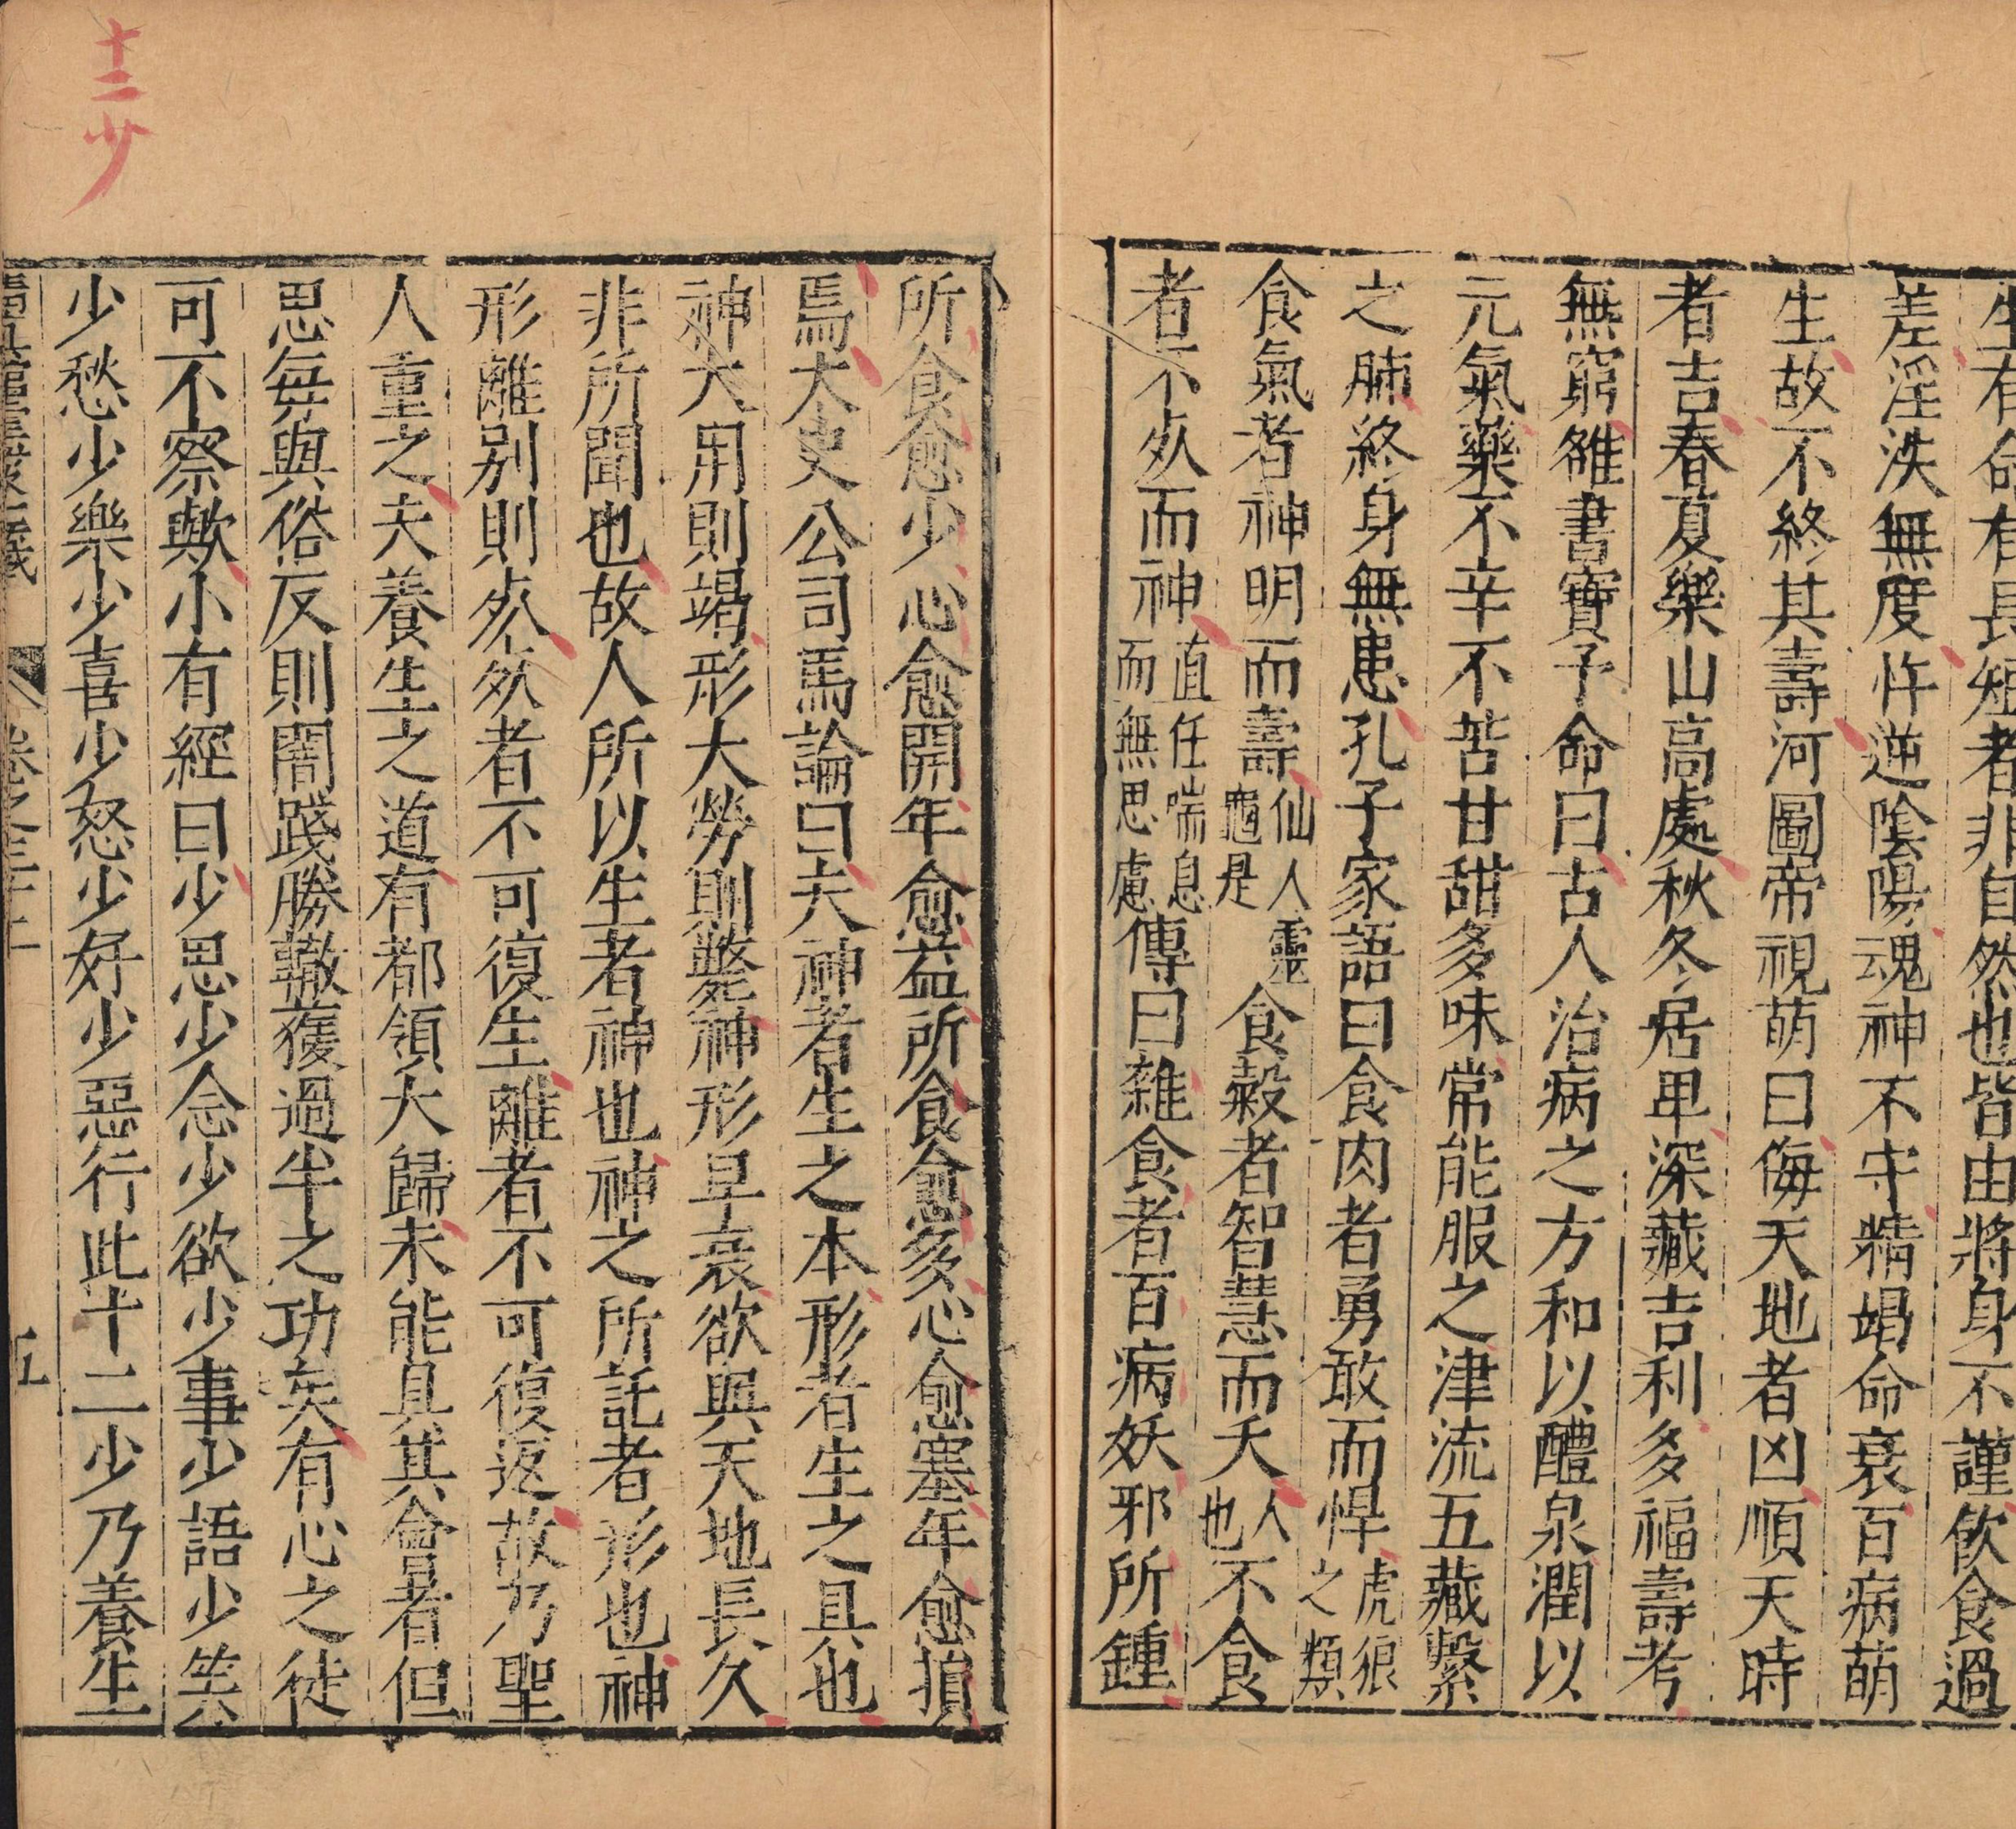 生有命有長短者非自然也皆由將身不謹飲食過
差淫泆無度忤逆陰陽魂神不守精竭命衰百病萌
生故不終其壽河圖帝視萌曰侮天地者凶順天時
者吉春夏樂山高處秋冬居卑深藏吉利多福壽考
無窮雒書寶予命曰古人治病之方和以醴泉潤以
元氣藥不辛不苦甘甜多味常能服之津流五藏繫
之肺終身無患孔子家語曰食肉者勇敢而悍虎狼之類
食氣者神明而壽仙人靈龜是食穀者智慧而夭人也不食
者不死而神直任喘息而無思慮傳曰雜食者百病妖邪所鍾
十二少
所食愈少心愈開年愈益所食愈多心愈塞年愈損
焉大史公司馬論曰夫神者生之本形者生之具也
神大用則竭形大勞則斃神形早衰欲與天地長久
非所聞也故人所以生者神也神之所託者形也神
形離別則死死者不可復生離者不可復返故乃聖
人重之夫養生之道有都領大歸未能具其會者但
思每與俗反則闇踐勝轍獲過半之功矣有心之徒
可不察歟小有經曰少思少念少欲少事少語少笑
少愁少樂少喜少怒少好少惡行此十二少乃養生
卷之三十 五